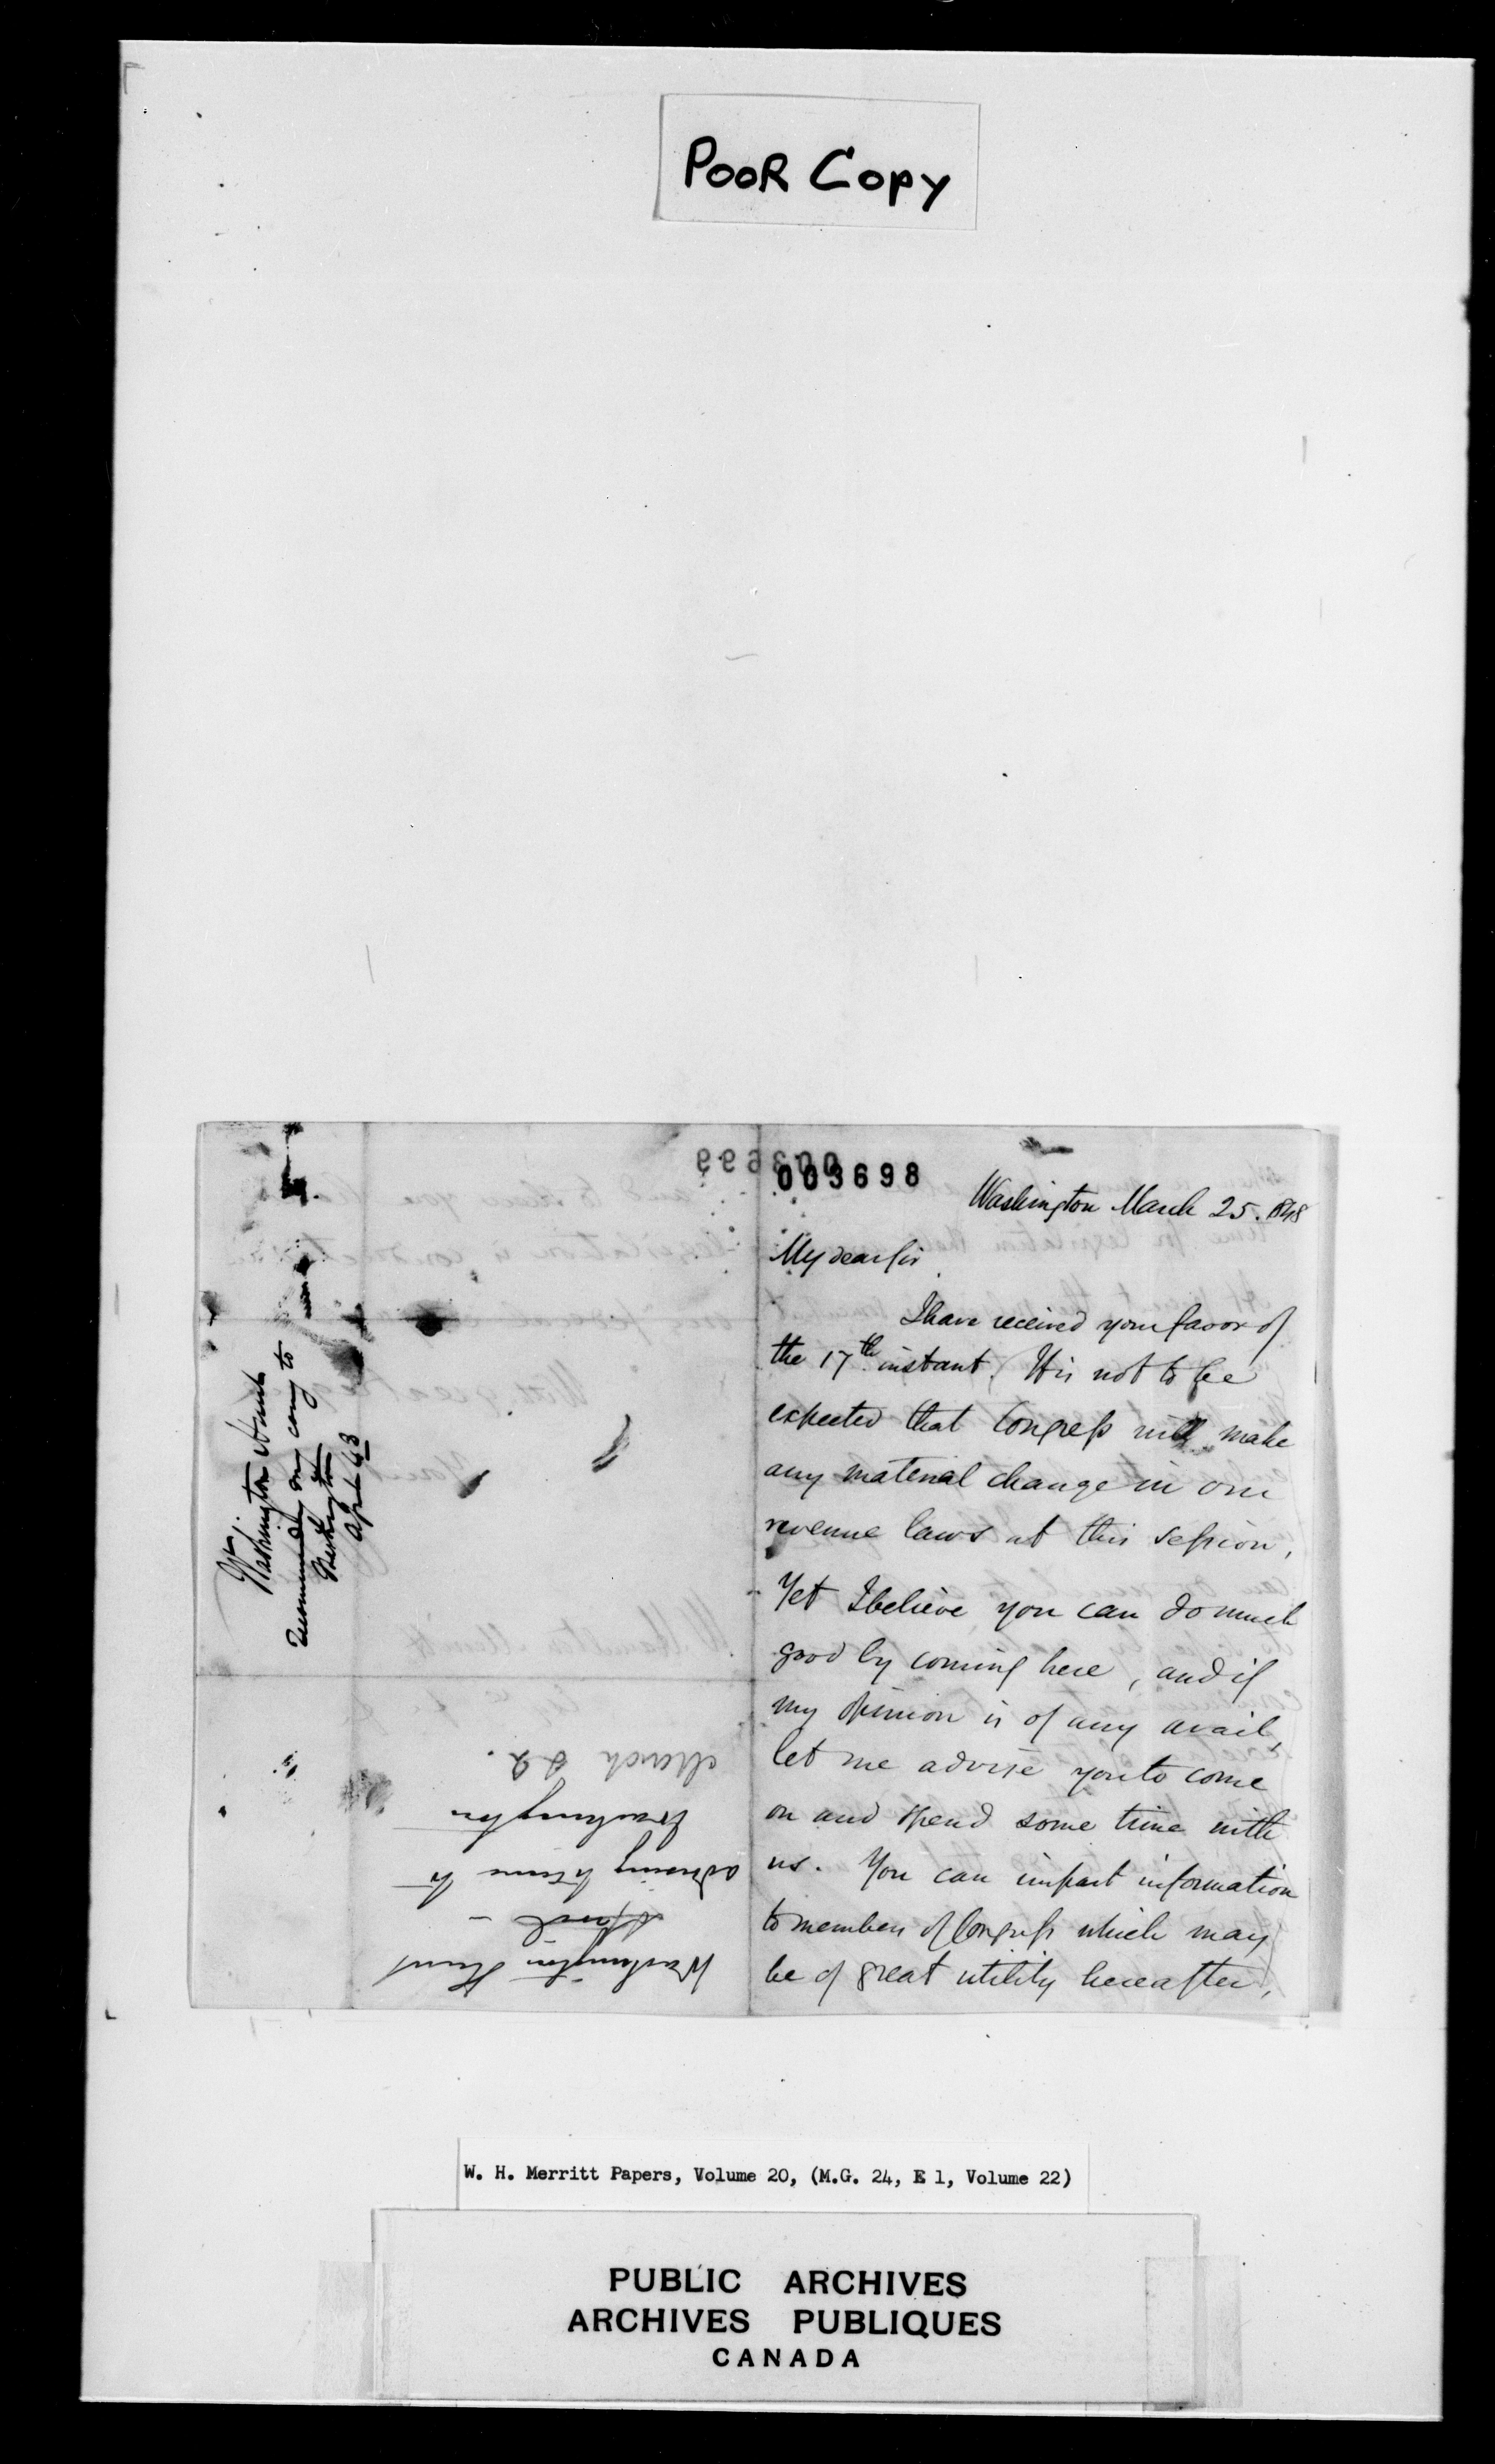 POOR COPY
003698
Washington March 25. 1848
My dear Sir
I have received your favor of
the 17th instant. It is not to be
expected that Congress will make
any material change in our
revenue laws at this session,
Yet I believe you can do much
good by coming here, and if
my opinion is of any avail,
let me advise you to come
on and spend some time with
us. You can impart information
to members of Congress which may
be of great utility hereafter,
Washington Hunt
April
advising to come to
Washington
March
Washington Hunt
Recommending my coming to
Washington
April
W. H. Merritt Papers, Volume 20, (M.G. 24, E 1, Volume 22)
PUBLIC ARCHIVES
ARCHIVES PUBLIQUES
CANADA